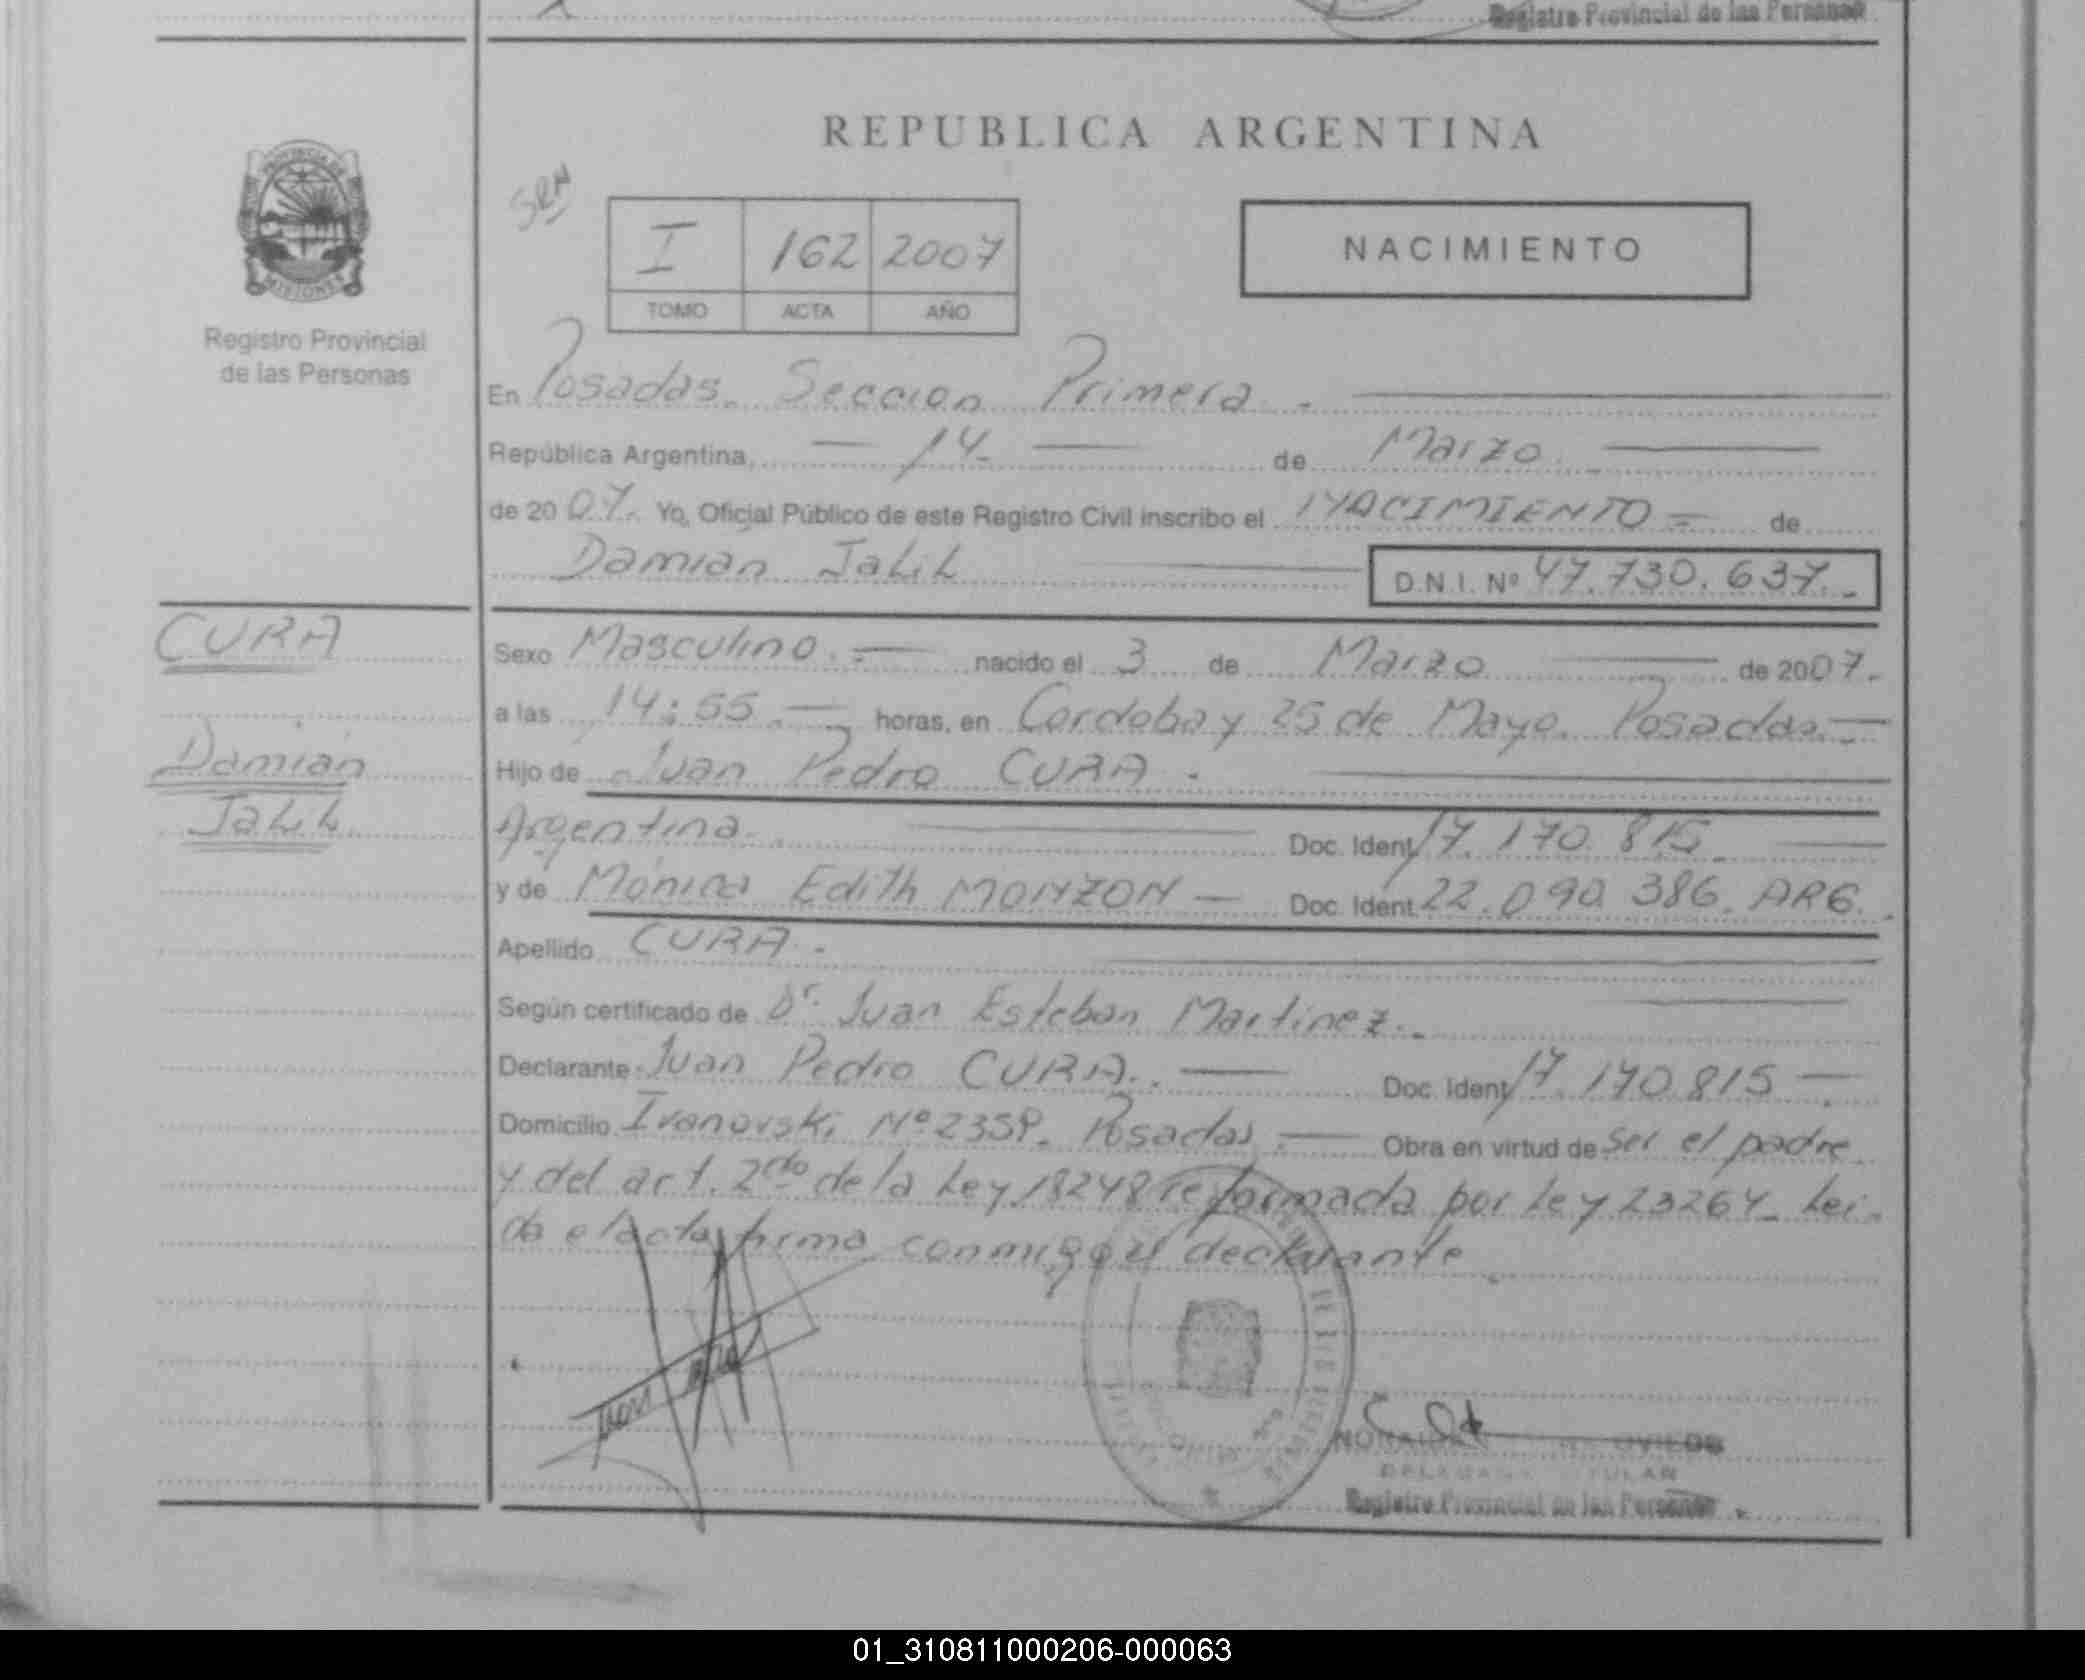 Registro Provincial de las Personas
REPUBLICA ARGENTINA
SRN
I 162 2007
TOMO ACTA AÑO
NACIMIENTO
PROVINCIA DE
MISIONES
Registro Provincial
de las Personas
En Posadas. Seccion Primera.
República Argentina, 14 de Marzo
de 2007. Yo, Oficial Público de este Registro Civil inscribo el NACIMIENTO = de
Damián Jalil D.N.I. Nº 47.730.637.-
CURA
Damián
Jalil
Sexo Masculino.- nacido el 3 de Marzo de 2007.
a las 14:55.- horas, en Cordoba y 25 de Mayo. Posadas.-
Hijo de Juan Pedro CURA.
Argentina. Doc. Ident. 17.170.815
y de Mónica Edith MONZON - Doc. Ident. 22.090.386. ARG.
Apellido CURA.
Según certificado de Dr. Juan Esteban Martinez.
Declarante Juan Pedro CURA. Doc. Ident. 17.170.815
Domicilio Ivanovski Nº 2358. Posadas.- Obra en virtud de ser el padre
y del art. 2do de la Ley 18248 reformada por Ley 23264_ Lei-
da el acta firma conmigo el declarante.
OVIEDO
Registro Provincial de las Personas
01_310811000206-000063